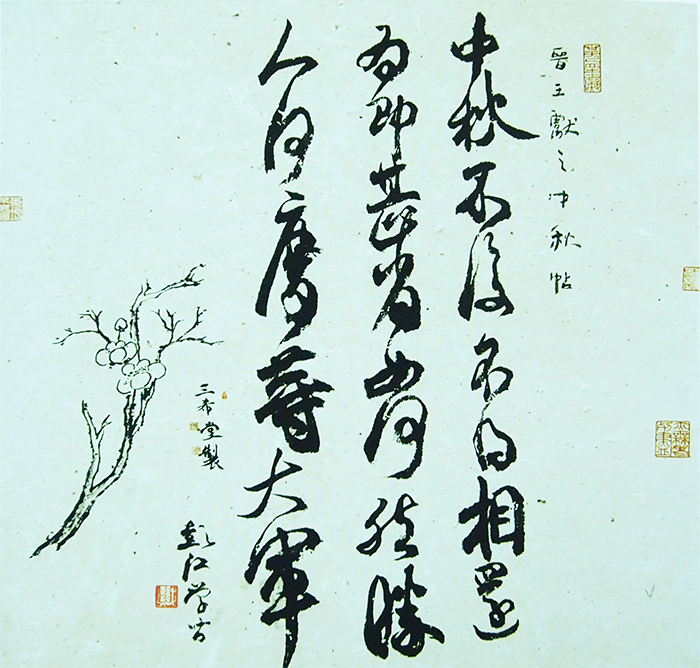 晉王獻之中秋帖
中秋不復不得相還
為即甚省如何然勝
人何慶等大軍
三希堂製
彭江